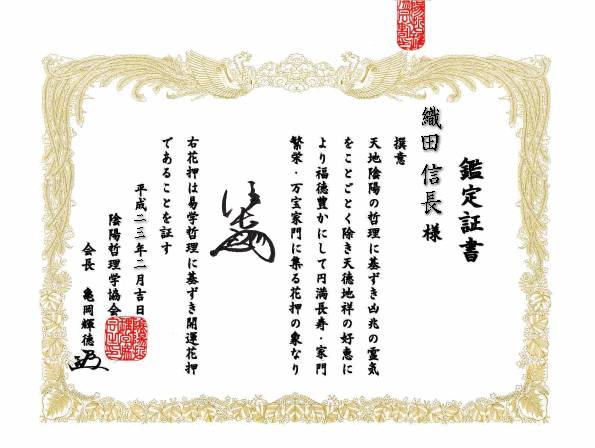 鑑定証書
織田 信長 様
撰意
天地陰陽の哲理に基ずき凶兆の霊気
をことごとく除き天徳地祥の好恵に
より福徳豊かにして円満長寿・家門
繁栄・万宝家門に集る花押の象なり
右花押は易学哲理に基ずき開運花押
であることを証す
平成二三年二月吉日
陰陽哲理学協会
会長 亀岡輝徳